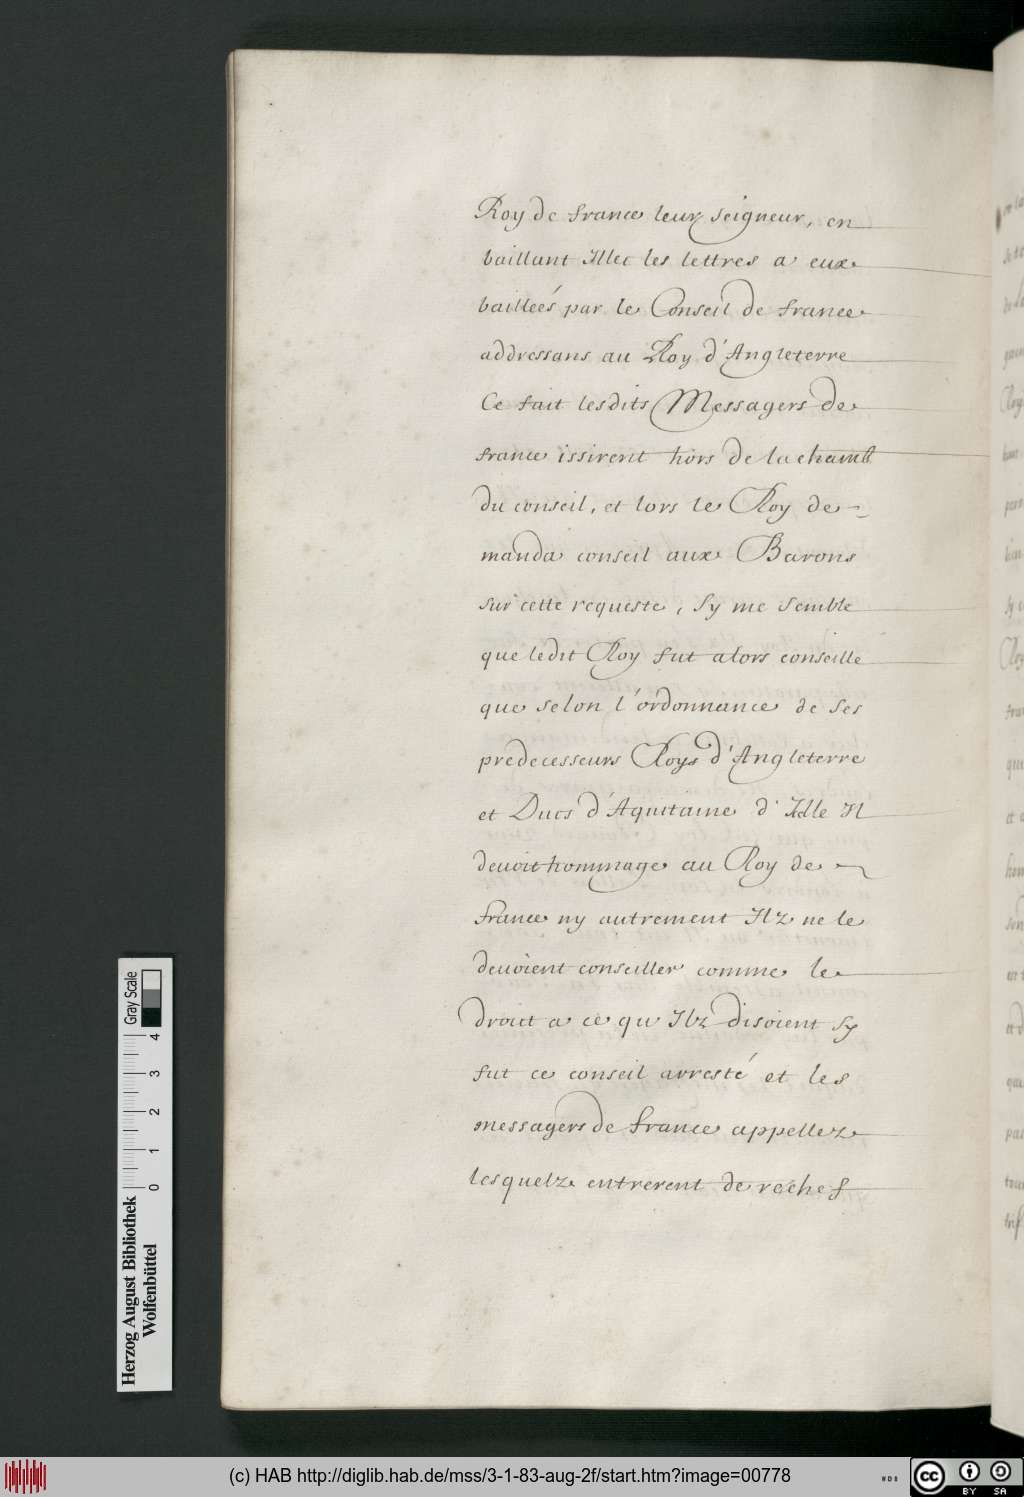 Roy de france leur seigneur, en
baillant Illec les lettres a eux
bailleés par le Conseil de france
addressans au Roy d'Angleterre
Ce fait lesdits Messagers de
france issirent hors de la chamb
du conseil, et lors le Roy de
manda conseil aux Barons
sur cette requeste, sy me semble
que ledit Roy fut alors conseille
que selon l'ordonnance de ses
predecesseurs Roys d'Angleterre
et Ducs d'Aquitaine d' Il
devoit hommage au Roy de
france ny autrement Ilz ne le
devoient conseiller comme le
droict a ce qu Ilz disoient sy
fut ce conseil arresté et les
messagers de france appellez
lesquelz entrerent de rechef
Herzog August Bibliothek
Wolfenbüttel
0 1 2 3 4
Gray Scale
(c) HAB http://diglib.hab.de/mss/3-1-83-aug-2f/start.htm?image=00778
WDB
cc BY SA